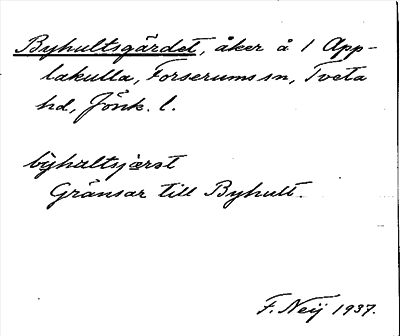 Byhultsgärdet, åker å 1 App-
lakulla, Forserums sn, Tveta
hd, Jönk. l.
Gränsar till Byhult.
F. Neij 1937.